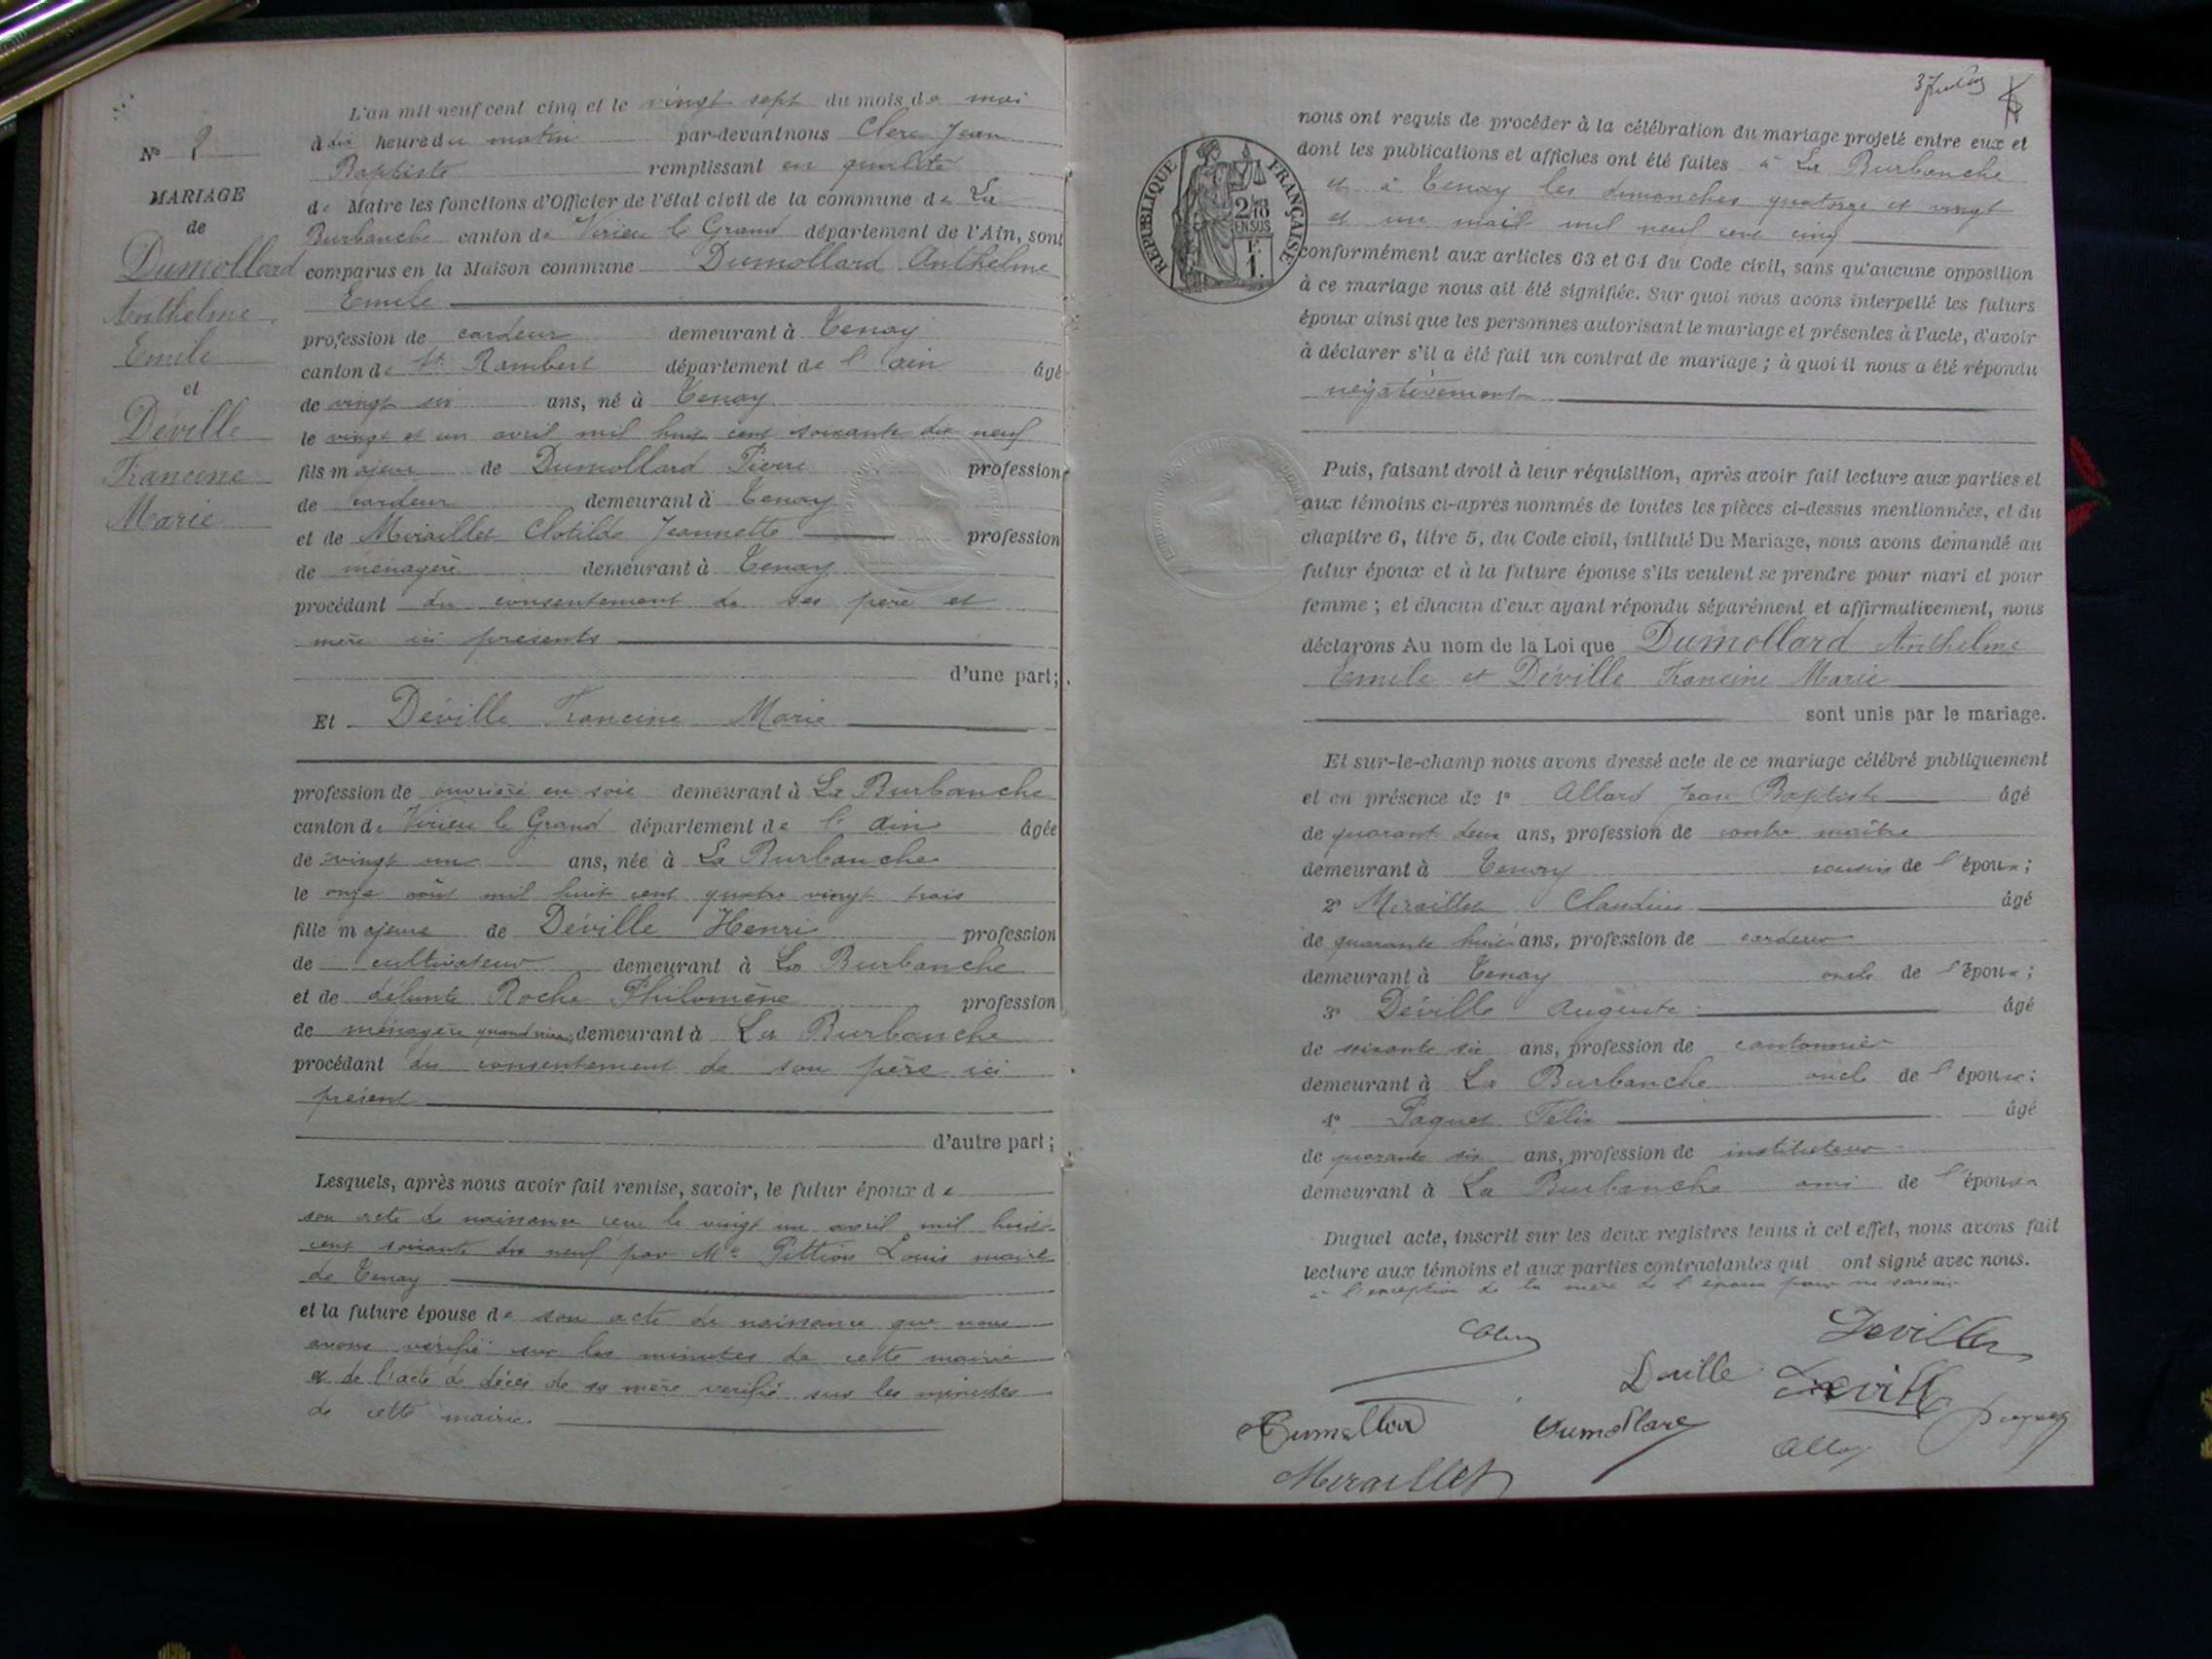 L'an mil neuf cent cinq et le vingt sept du mois de mai
à dix heure du matin par-devant nous Clerc Jean
Baptiste remplissant en qualité
de Maire les fonctions d'Officier de l'état civil de la commune de La
Burbanche canton de Virieu le Grand département de l'Ain, sont
comparus en la Maison commune Dumollard Anthelme
Emile
profession de cardeur demeurant à Tenay
canton de St Rambert département de l'ain âgé
de vingt six ans, né à Tenay
le vingt et un avril mil huit cent soixante dix neuf
fils majeur de Dumollard Pierre profession
de cardeur demeurant à Tenay
et de Miraillet Clotilde Jeannette profession
de ménagère demeurant à Tenay
procédant du consentement de ses père et
mère ici présents
d'une part;
Et Déville Francine Marie
profession de ouvrière en soie demeurant à La Burbanche
canton de Virieu le Grand département de l'ain âgée
de vingt un ans, née à La Burbanche
le onze août mil huit cent quatre vingt trois
fille majeure de Déville Henri profession
de cultivateur demeurant à La Burbanche
et de défunte Roche Philomène profession
de ménagère quand vivait demeurant à La Burbanche
procédant du consentement de son père ici
présent
d'autre part;
Lesquels, après nous avoir fait remise, savoir, le futur époux de
son acte de naissance reçu le vingt un avril mil huit
cent soixante dix neuf par Mr Pittion Louis maire
de Tenay
et la future épouse de son acte de naissance que nous
avons vérifié sur les minutes de cette mairie
et de l'acte de décès de sa mère vérifié sur les minutes
de cette mairie.
N° 2
MARIAGE
de
Dumollard
Anthelme
Emile
et
Déville
Francine
Marie
RÉPUBLIQUE FRANÇAISE
2/10
EN SUS
F.
1.
nous ont requis de procéder à la célébration du mariage projeté entre eux et
dont les publications et affiches ont été faites à La Burbanche
et à Tenay les dimanches quatorze et vingt
et un mail mil neuf cent cinq
conformément aux articles 63 et 64 du Code civil, sans qu'aucune opposition
à ce mariage nous ait été signifiée. Sur quoi nous avons interpellé les futurs
époux ainsi que les personnes autorisant le mariage et présentes à l'acte, d'avoir
à déclarer s'il a été fait un contrat de mariage; à quoi il nous a été répondu
négativement
Puis, faisant droit à leur réquisition, après avoir fait lecture aux parties et
aux témoins ci-après nommés de toutes les pièces ci-dessus mentionnées, et du
chapitre 6, titre 5, du Code civil, intitulé Du Mariage, nous avons demandé au
futur époux et à la future épouse s'ils veulent se prendre pour mari et pour
femme; et chacun d'eux ayant répondu séparément et affirmativement, nous
déclarons Au nom de la Loi que Dumollard Anthelme
Emile et Déville Francine Marie
sont unis par le mariage.
Et sur-le-champ nous avons dressé acte de ce mariage célébré publiquement
et en présence de 1° Allard Jean Baptiste âgé
de quarante deux ans, profession de contre maître
demeurant à Tenay cousin de l'époux;
2° Miraillet Claudius âgé
de quarante huit ans, profession de cardeur
demeurant à Tenay oncle de l'époux;
3° Déville Auguste âgé
de soixante six ans, profession de cantonnier
demeurant à La Burbanche oncle de l'épouse;
4° Paquet Félix âgé
de quarante six ans, profession de instituteur
demeurant à La Burbanche ami de l'épouse
Duquel acte, inscrit sur les deux registres tenus à cet effet, nous avons fait
lecture aux témoins et aux parties contractantes qui ont signé avec nous.
à l'exception de la mère de l'époux pour ne savoir
Clerc
Deville
Deville
Deville
Paquet
Dumollard
Dumollard
Allard
Miraillet